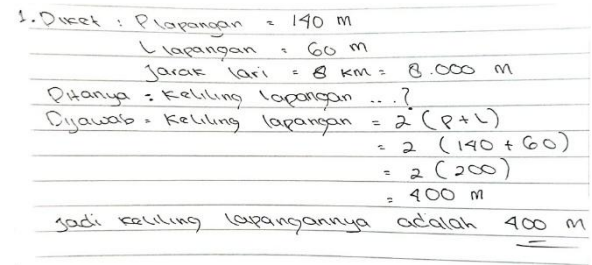 1. Diket : P lapangan = 140 m
L lapangan = 60 m
Jarak lari = 8 km = 8.000 m
Ditanya = Keliling lapangan ... ?
Dijawab = Keliling lapangan = 2 (P + L)
= 2 (140 + 60)
= 2 (200)
= 400 m
Jadi keliling lapangannya adalah 400 m